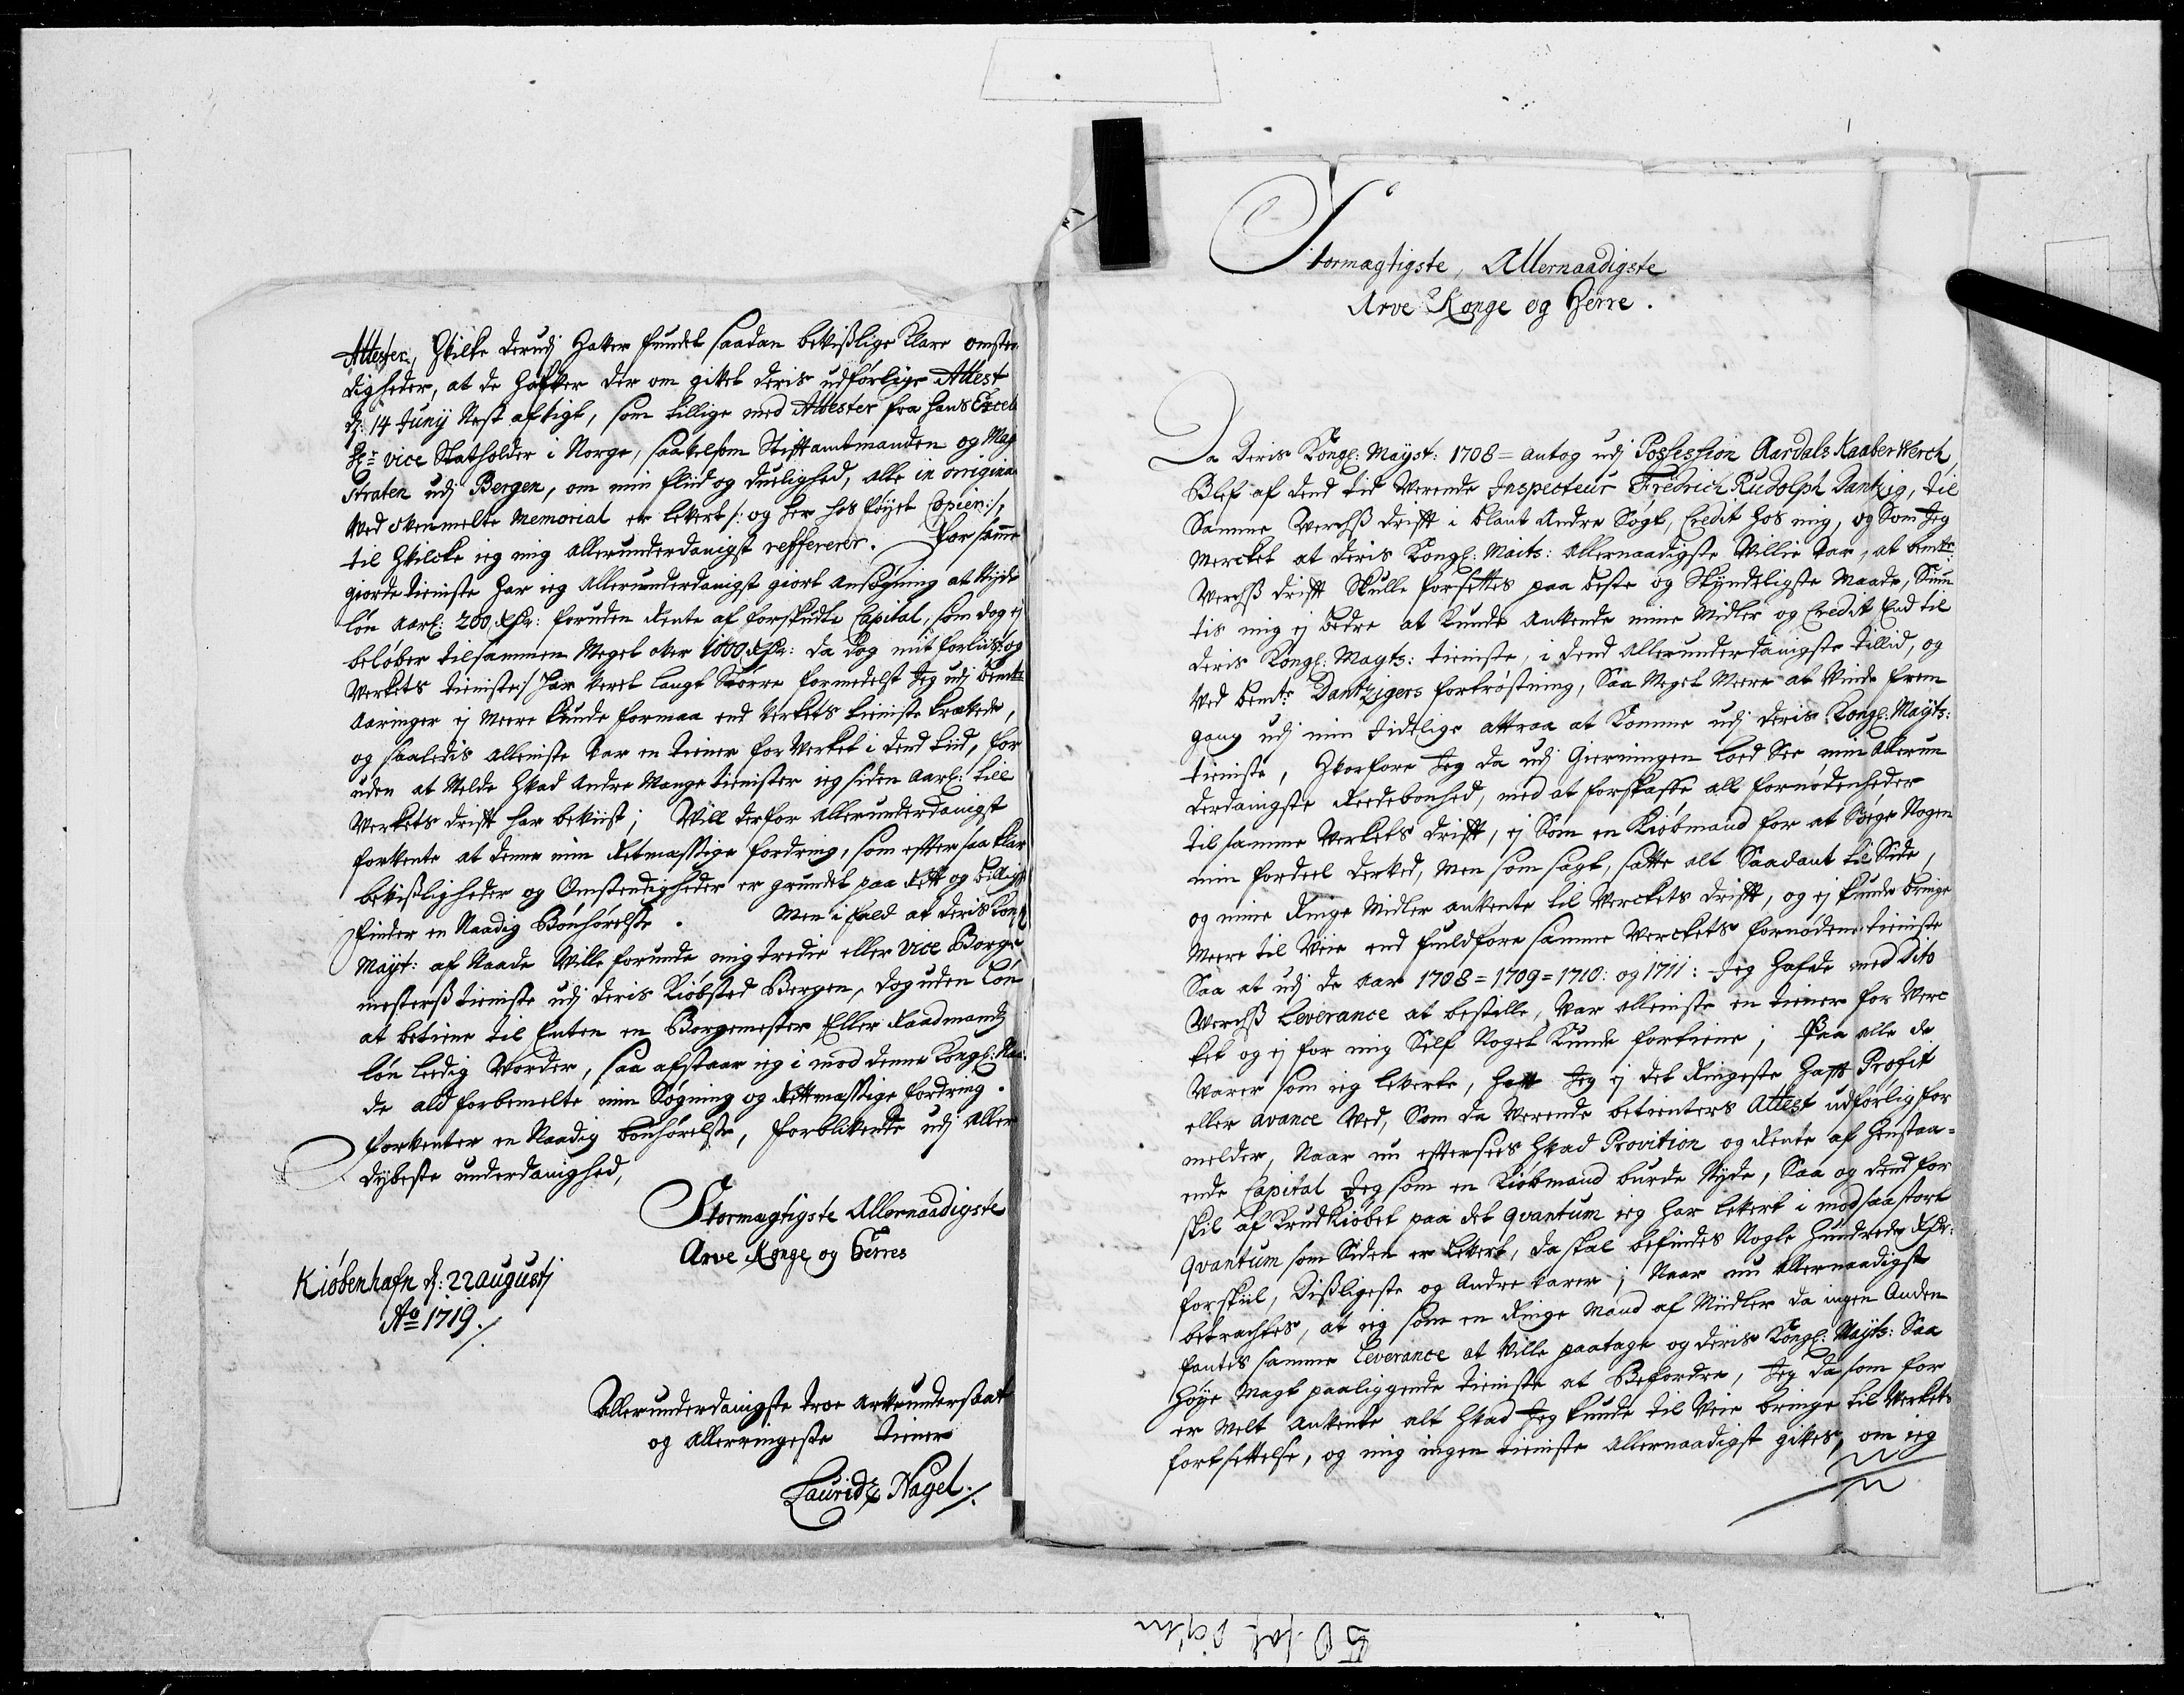 Attester, Hvilke derudj Hafver fundet saadan bevißlige klare omsten
digheder, at de hafver der om givet deris udførlige Attest
dj: 14 Junij Nest afvigt, som tillige med Attester fra hans Excell
Hr: vice Statholder i Norge, saavelsom Stiftamtmanden og Mag
straten udj Bergen, om min fliid og duelighed, alle in origina
ved ovenmelte Memorial er levert /: og her hos føyet Copier :/,
til Hvilcke ieg mig allerunderdanigst reffererer. For samme
giorde tieniste har ieg allerunderdanigst giort ansøgning at Nyde
løn aarl: 200 Rdr: foruden Rente af forskudte Capital, som dog ej
beløber tilsammen Meget over 1000 Rdr: da dog mit forliis og
Verkets tieniste :/ har veret langt Større formedelst Jeg udj bemte
Aaringer ej Meere kunde formaa end Verkets tieniste krævede,
og saaledis alleniste var en tiener for Verket i dend tiid, for
uden at Melde Hvad andre Mange tienister ieg siden aarl: till
Verkets drift har beviist; Vill derfor allerunderdanigst
forvente at denne min Retmessige fordring, som efter saa klar
bevißligheder og Omstendigheder er grundet paa Rett og billigh
finder en Naadig Bønhørelse. Men i fald at deris Kongl
Mayt: af Naade Ville forunde mig tredie eller Vice Borge
mesterß tieniste udj deris Kiøbsted Bergen, dog uden Løn
at betiene til Enten en Borgemester Eller Raadmands
løn leedig Vorder, saa afstaar ieg i mod denne Kongl: Naa
de ald forbemelte min Søgning og Rettmessige fordring.
Forventer en Naadig bønhørelse, forblivende udj aller
dybeste underdanighed,
Stormagtigste Allernaadigste
Arve Konge og Herres
Kiøbenhafn d: 22 augustj
Ao 1719./.
Allerunderdanigste troe arveundersaat
og allerringeste tiener
Lauridz Nagel./.
Stormagtigste, Allernaadigste
Arve Konge og Herre.
Da Deris Kongl: Mayst: 1708 = antog udj Possession Aardals Kaaberwerch,
Blef af dend tid Verende Inspecteur Fredrich Rudolph Dantzig, til
Samme Werchß drift i blant andre Søgt, Credit hos mig, og Som Jeg
Mercket at deris Kongl: Maits: allernaadigste Villie var, at bemte:
Werchß drift Skulle forsettes paa beste og Skyndeligste Maade, Siun
tis mig ej bedre at kunde anvende mine Midler og Credit End til
deris Kongl: Mayts: tieniste, i dend allerunderdanigste tillid, og
ved bemte Dantzigers fortrøstning, Saa Meget Meere at Vinde frem
gang udj min Iidelige attraa at komme udj deris Kongl: Mayts:
tieniste, Hvorfore Jeg da udj Gierningen lod See min allerun
derdanigste Reedebonhed, med at forskaffe all fornødenheder
til samme Verkets drift, ej Som en Kiøbmand for at Søge Nogen
min fordeel derved, Men som sagt, satte alt Saadant til Side,
og mine Ringe Midler anvente til Verckets drift, og ej kunde bringe
Meere til Veie end fuldføre samme Verckets fornødene tieniste
Saa at udj de Aar 1708 = 1709 = 1710: og 1711: Jeg hafde med dito
Werchß Leverance at bestille, Var alleniste en tiener for Verc
ket og ej for mig Self Noget kunde fortiene; Paa alle de
Varer som ieg leverte, Jeg ej det Ringeste haft Profit
eller avance ved, Som da Verende betienters Attest udførlig for
melder, Naar nu eftersees Hvad Provition og Rente af henstaa-
ende Capital Jeg som en Kiøbmand burde Nyde, Saa og dend for
skil af KrudKiøbet paa det qvantum ieg har levert i mod saa stort
qvantum som Siden er levert, da skal befindes Nogle hundrede Rdr:
forskiel, dißligeste og andre varer; Naar nu allernaadigst
betrachtes, at ieg som en Ringe Mand af Midler da ingen Anden
fantis samme Leverance at Ville paatage og deris Kongl: Mayts: Saa
høye Magt paaliggende tieniste at Befordre, Jeg da som for
er Melt anvente alt Hvad Jeg kunde til Veie bringe til Verkets
fortsettelse, og mig ingen tieniste allernaadigst gives, om ieg